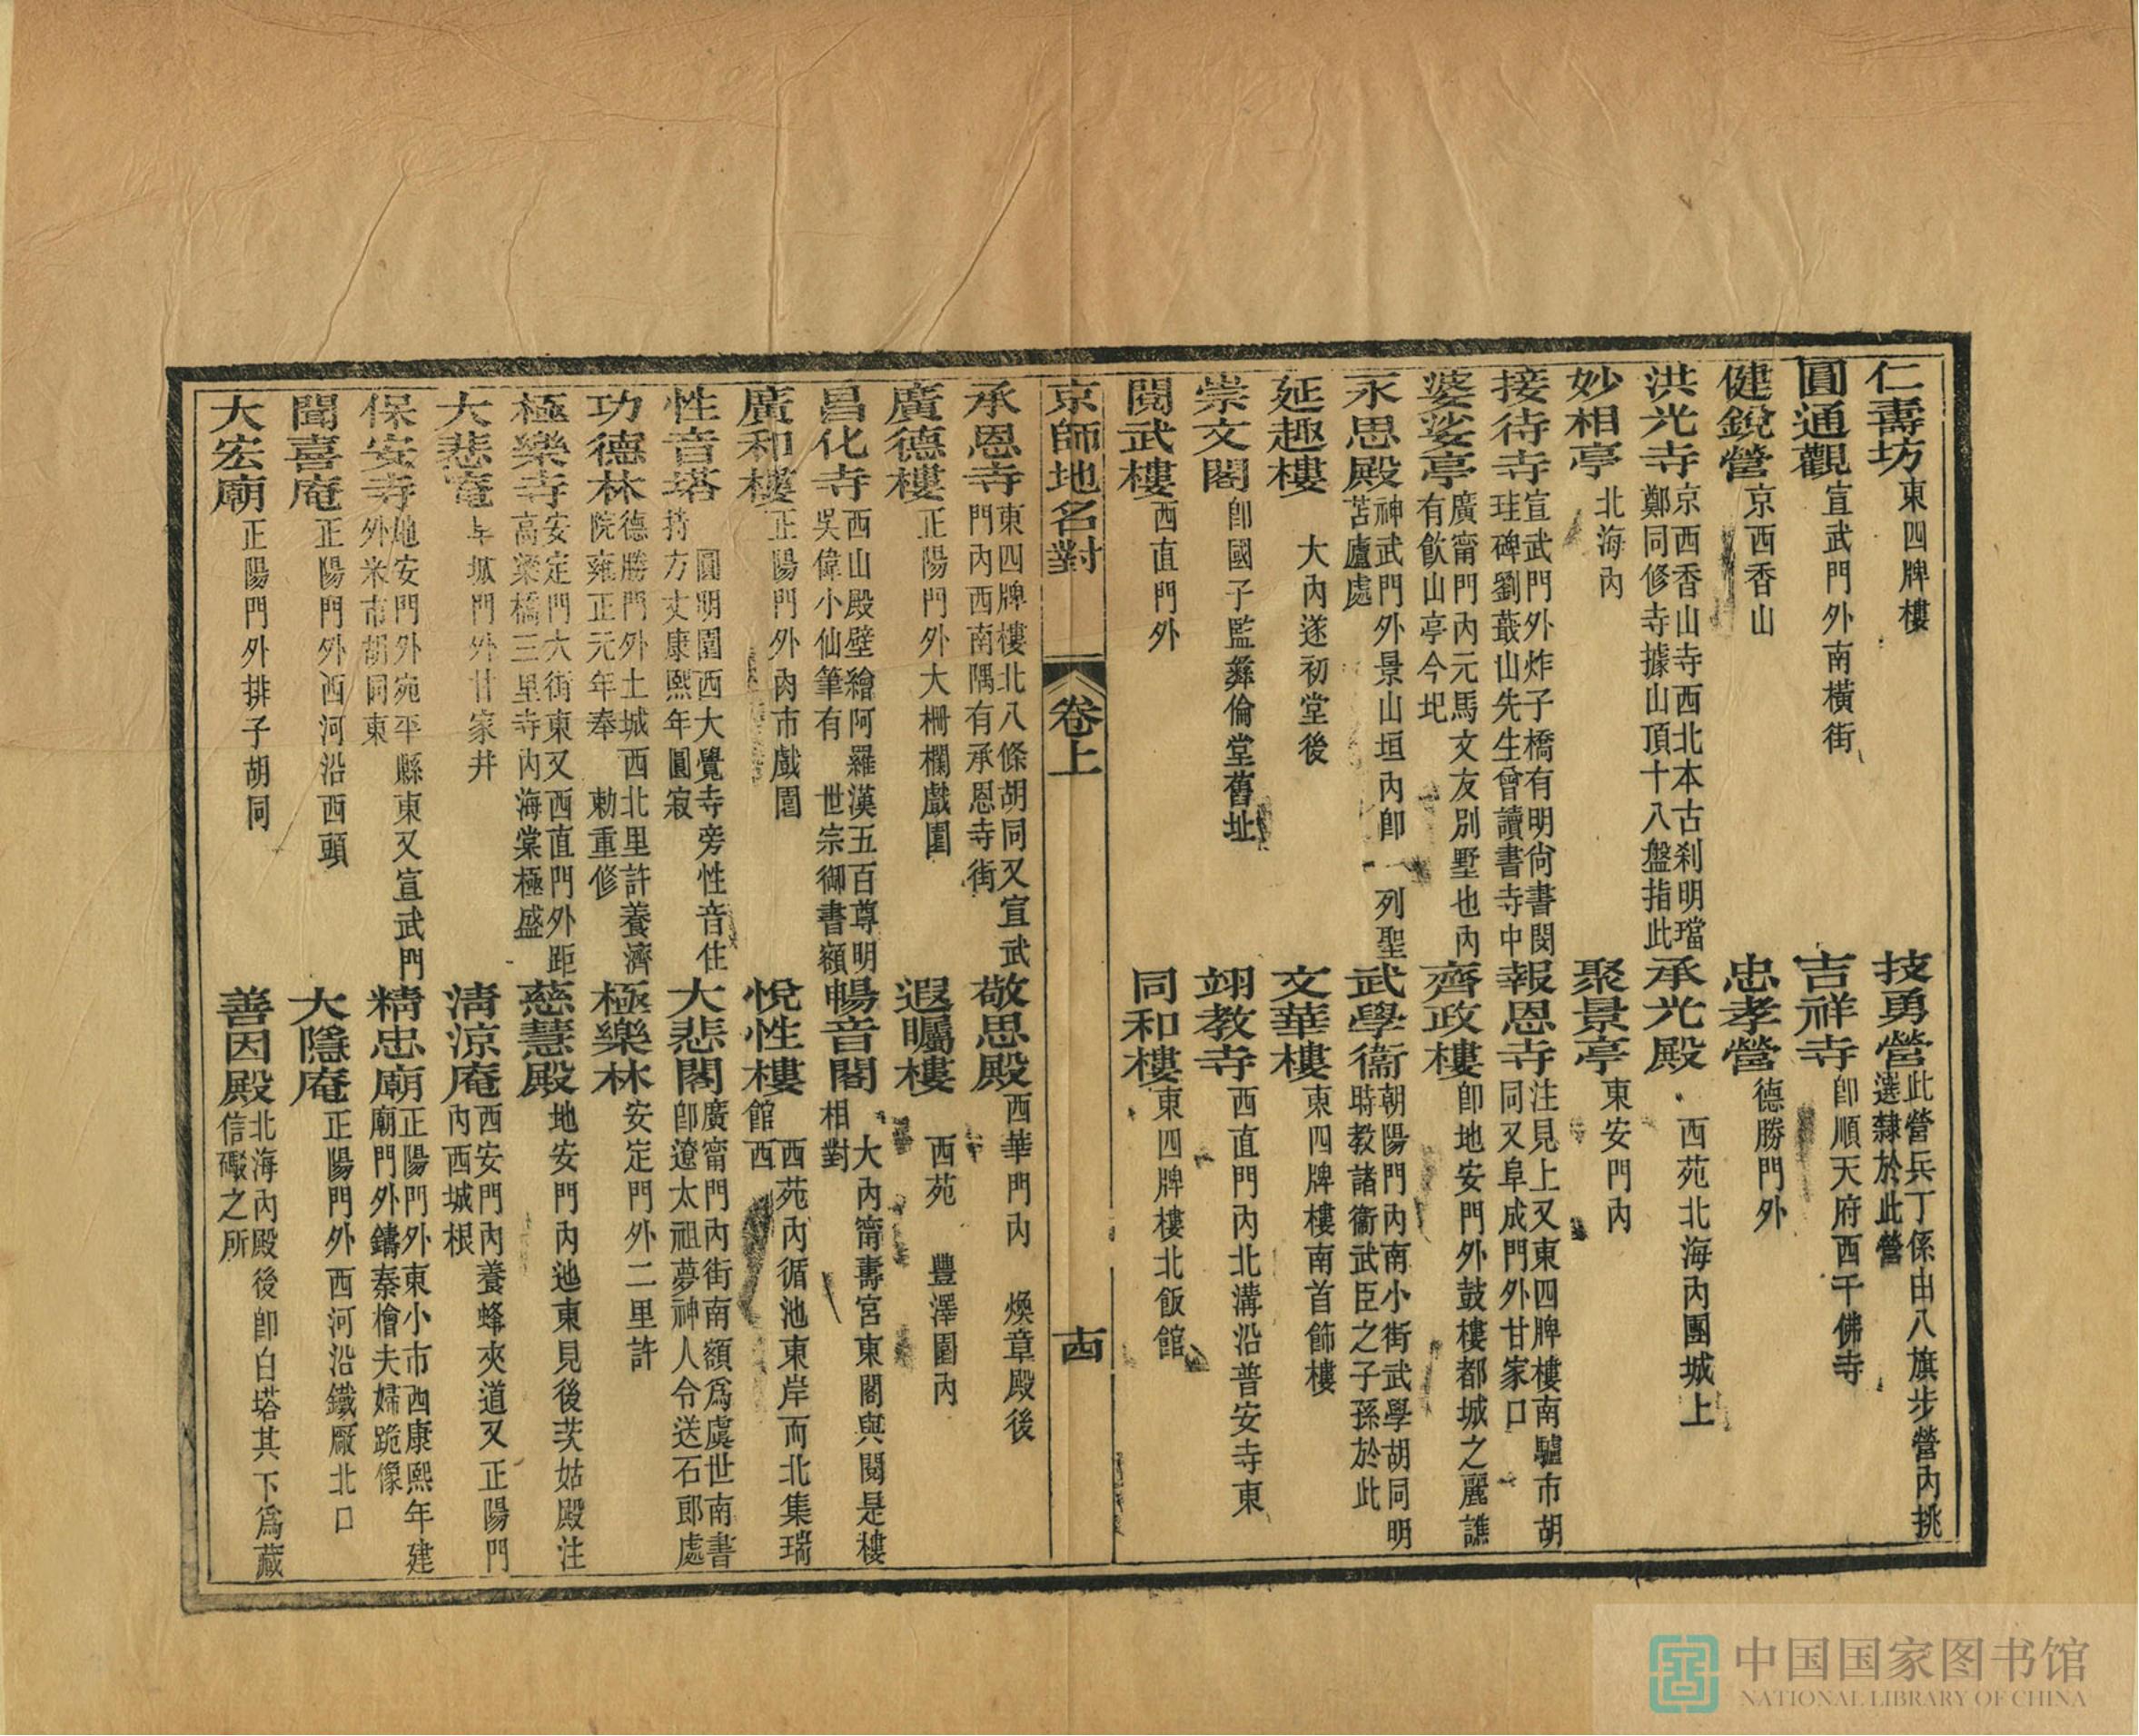 仁壽坊 東四牌樓 技勇營 此營兵丁係由八旗步營內挑選隸於此營
圓通觀 宣武門外南橫街 吉祥寺 卽順天府西千佛寺
健銳營 京西香山 忠孝營 德勝門外
洪光寺 京西香山寺西北本古刹明璫鄭同修寺據山頂十八盤指此 承光殿 西苑北海內團城上
妙相亭 北海內 聚景亭 東安門內
接待寺 宣武門外炸子橋有明尙書閔珪碑劉蕺山先生曾讀書寺中 報恩寺 注見上又東四牌樓南驢市胡同又阜成門外甘家口
婆娑亭 廣甯門內元馬文友別墅也內有飮山亭今圯 齊政樓 卽地安門外鼓樓都城之麗譙
永思殿 神武門外景山垣內卽 列聖苫廬處 武學衞 朝陽門內南小街武學胡同明時教諸衞武臣之子孫於此
延趣樓 大內遂初堂後 文華樓 東四牌樓南首飾樓
崇文閣 卽國子監彝倫堂舊址 翊教寺 西直門內北溝沿普安寺東
閱武樓 西直門外 同和樓 東四牌樓北飯館
京師地名對 卷上 十四
承恩寺 東四牌樓北八條胡同又宣武門內西南隅有承恩寺街 敬思殿 西華門內 煥章殿後
廣德樓 正陽門外大柵欄戲園 遐矚樓 西苑 豐澤園內
昌化寺 西山殿壁繪阿羅漢五百尊明吳偉小仙筆有 世宗御書額 暢音閣 大內甯壽宮東閣與閱是樓相對
廣和樓 正陽門外肉市戲園 悅性樓 西苑內循池東岸而北集瑞館西
性音塔 圓明園西大覺寺旁性音住持方丈康熙年圓寂 大悲閣 廣甯門內街南額爲虞世南書卽遼太祖夢神人令送石郎處
功德林 德勝門外土城西北里許養濟院雍正元年奉 勅重修 極樂林 安定門外二里許
極樂寺 安定門大街東又西直門外距高梁橋三里寺內海棠極盛 慈慧殿 地安門內池東見後茨姑殿注
大悲菴 阜城門外甘家井 淸涼庵 西安門內養蜂夾道又正陽門內西城根
保安寺 地安門外宛平縣東又宣武門外米市胡同東 精忠廟 正陽門外東小市西康熙年建廟門外鑄秦檜夫婦跪像
聞喜庵 正陽門外西河沿西頭 大隱庵 正陽門外西河沿鐵廠北口
大宏廟 正陽門外排子胡同 善因殿 北海內殿後卽白塔其下爲藏信礮之所
中国国家图书馆
NATIONAL LIBRARY OF CHINA